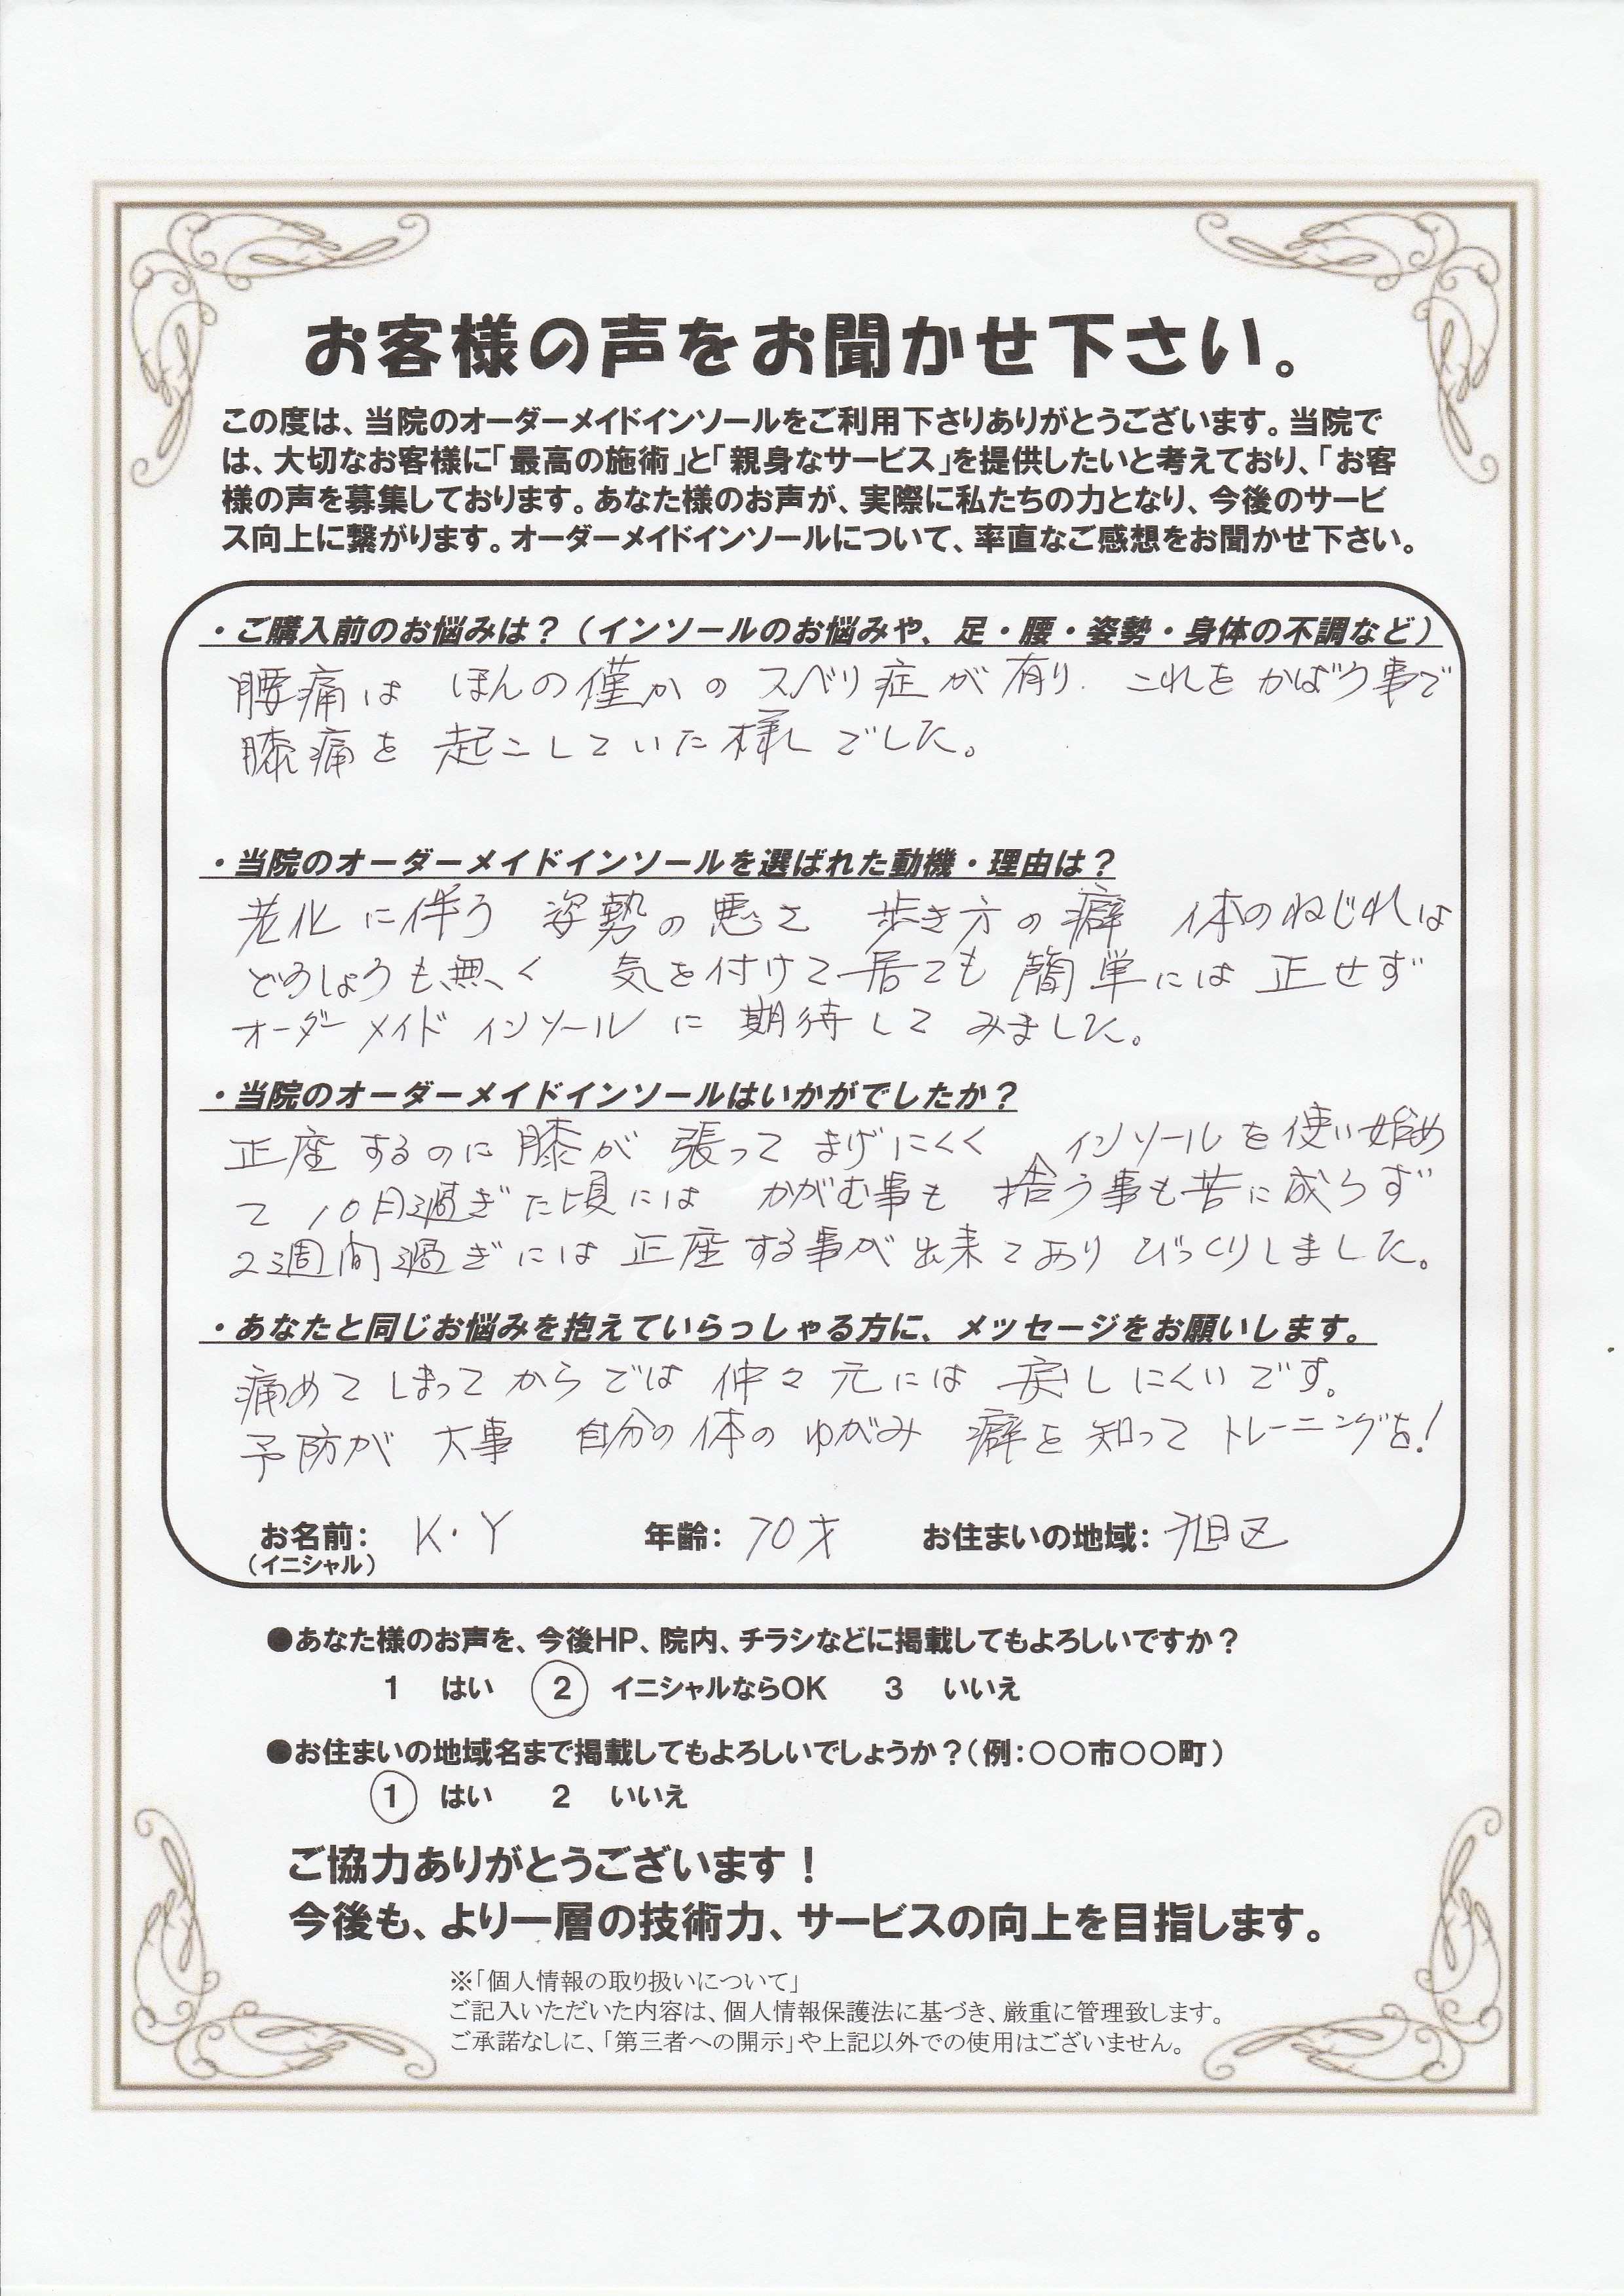 お客様の声をお聞かせ下さい。
この度は、当院のオーダーメイドインソールをご利用下さりありがとうございます。当院で
は、大切なお客様に「最高の施術」と「親身なサービス」を提供したいと考えており、「お客
様の声を募集しております。あなた様のお声が、実際に私たちの力となり、今後のサービ
ス向上に繋がります。オーダーメイドインソールについて、率直なご感想をお聞かせ下さい。
・ご購入前のお悩みは？（インソールのお悩みや、足・腰・姿勢・身体の不調など）
腰痛は ほんの僅かの スベリ症が有り. これを かばう事で
膝痛を 起こしていた様しでした。
・当院のオーダーメイドインソールを選ばれた動機・理由は？
老化に伴う 姿勢の悪さ 歩き方の癖 体のねじれは
どうしようも無く 気を付けて居ても 簡単には 正せず
オーダーメイド インソールに 期待して みました。
・当院のオーダーメイドインソールはいかがでしたか？
正座するのに膝が 張って まげにくく インソールを使い始め
て 10日過ぎた頃には かがむ事も 拾う事も苦に成らず
2週間過ぎには 正座する事が出来ており びっくりしました。
・あなたと同じお悩みを抱えていらっしゃる方に、メッセージをお願いします。
痛めてしまってからでは 仲々元には 戻しにくいです。
予防が 大事 自分の体のゆがみ 癖を知って トレーニングを!
お名前： K・Y 年齢： 70才 お住まいの地域： 旭区
（イニシャル）
●あなた様のお声を、今後HP、院内、チラシなどに掲載してもよろしいですか？
1 はい 2 イニシャルならOK 3 いいえ
●お住まいの地域名まで掲載してもよろしいでしょうか？（例：〇〇市〇〇町）
1 はい 2 いいえ
ご協力ありがとうございます！
今後も、より一層の技術力、サービスの向上を目指します。
※「個人情報の取り扱いについて」
ご記入いただいた内容は、個人情報保護法に基づき、厳重に管理致します。
ご承諾なしに、「第三者への開示」や上記以外での使用はございません。